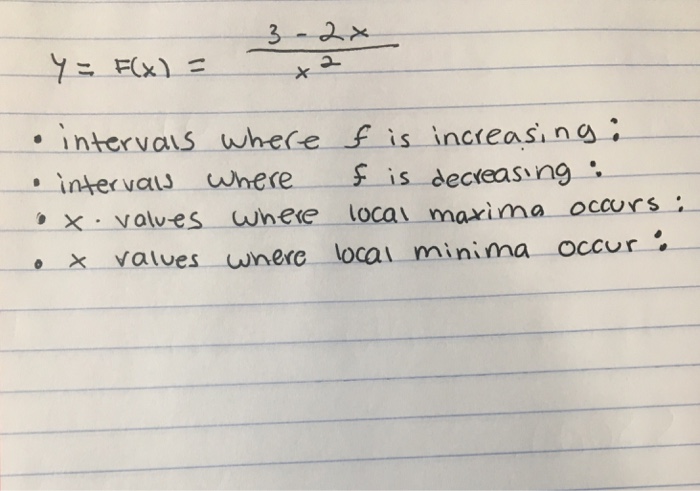 y = F(x) = (3 - 2x) / x²
• intervals where f is increasing :
• intervals where f is decreasing :
• x - values where local maxima occurs :
• x values where local minima occur :